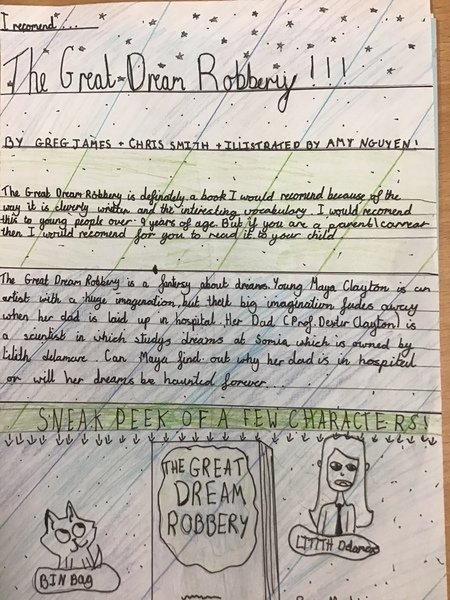 I recomend....
The Great Dream Robbery!!!
BY GREG JAMES + CHRIS SMITH + ILLISTRATED BY AMY NGUYEN!
The Great Dream Robbery is definately a book I would recomend because of the
way it is cleverly written and the interesting vocabulary. I would recomend
this to young people over 9 years of age. But if you are a parent/carrear
then I would recomend for you to read it to your child
The Great Dream Robbery is a fantasy about dreams. Young Maya Clayton is an
artist with a huge imagination, but that big imagination fades away
when her dad is laid up in hospital. Her Dad (Prof. Dexter Clayton) is
a scientist in which studys dreams at Somnia which is owned by
Lilith delamare. Can Maya find out why her dad is in hospital
or will her dreams be haunted forever...
SNEAK PEEK OF A FEW CHARACTERS!
THE GREAT
DREAM
ROBBERY
LILITH Delamare
BIN Bag